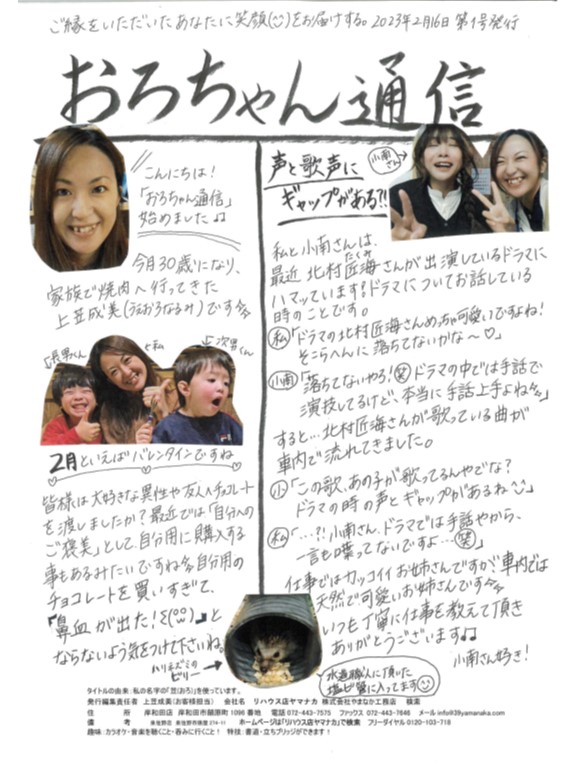 ご縁をいただいたあなたに笑顔(^^)をお届けする。2023年2月16日 第1号発行
おろちゃん通信
こんにちは!
「おろちゃん通信」
始めました♫
今月30歳になり、
家族で焼肉へ行ってきた
上荳成美(うえおろなるみ)です
長男くん
私
次男くん
2月といえばバレンタインですね
皆様は大好きな異性や友人へチョコレート
を渡しましたか?最近では「自分への
ご褒美」として、自分用に購入する
事もあるみたいですね 自分用の
チョコレートを買いすぎて、
『鼻血が出た!』と
ならないよう気をつけて下さいね。
ハリネズミの
ビリー
声と歌声に
ギャップがある?!
小南さん
私と小南さんは、
最近 北村匠海さんが出演しているドラマに
たくみ
ハマッています!ドラマについてお話している
時のことです。
私「ドラマの北村匠海さんめっちゃ可愛いですよね!
そこらへんに落ちてないかな〜♡」
小南「落ちてないやろ!笑 ドラマの中では手話で
演技してるけど、本当に手話上手よね」
すると…北村匠海さんが歌っている曲が
車内で流れてきました。
小「この歌、あの子が歌ってるんやでな?
ドラマの時の声とギャップがあるね^^」
私「…?!小南さん、ドラマでは手話やから、
一言も喋ってないですよ…笑」
仕事ではカッコイイお姉さんですが、車内では
天然で可愛いお姉さんです
いつも丁寧に仕事を教えて頂き
ありがとうございます♫
小南さん好き!
水道職人に頂いた
塩ビ管に入ってます
タイトルの由来:私の名字の「荳(おろ)」を使っています。
発行編集責任者 上荳成美(お客様担当) 会社名 リハウス店ヤマナカ 株式会社やまなか工務店 検索
住 所 岸和田店 岸和田市額原町1096番地 電話 072-443-7575 ファックス 072-443-7646 メール info@39yamanaka.com
備 考 泉佐野店 ホームページは「リハウス店ヤマナカ」で検索 フリーダイヤル 0120-103-718
趣味:カラオケ・音楽を聴くこと・呑みに行くこと! 特技:書道・立ちブリッジができます!